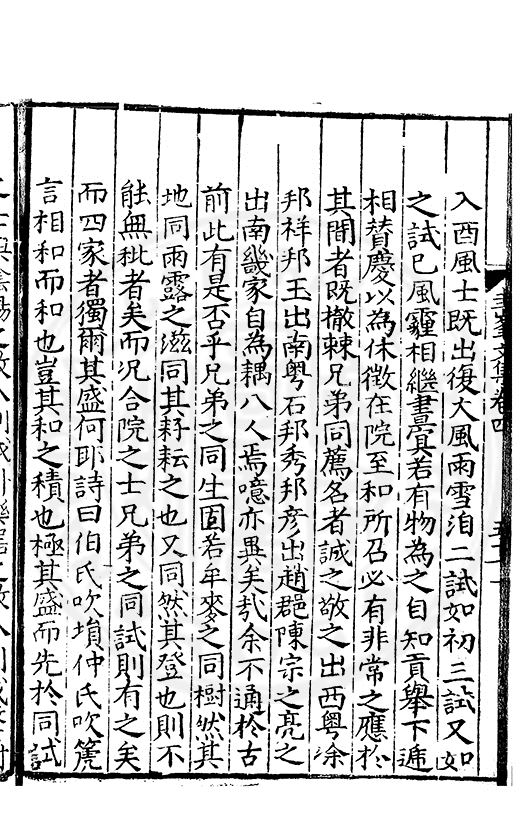 入酉風士既出復大風雨雪洎二試如初三試又如
之試已風霾相繼晝㝠若有物為之自知貢舉下遞
相賛慶以為休徵在院至和所召必有非常之應於
其間者既撤棘兄弟同薦名者誠之敬之出西粤涂
邦祥邦玉出南粤石邦秀邦彦出趙郡陳宗之亮之
出南畿家自為耦八人焉噫亦異矣㢤余不通於古
前此有是否乎兄弟之同生固若牟麥之同樹然其
地同雨露之滋同其耔耘之也又同然其登也則不
能無秕者矣而况合院之士兄弟之同試則有之矣
而四家者獨爾其盛何耶詩曰伯氏吹塤仲氏吹篪
言相和而和也豈其和之積也極其盛而先於同試
文集卷四